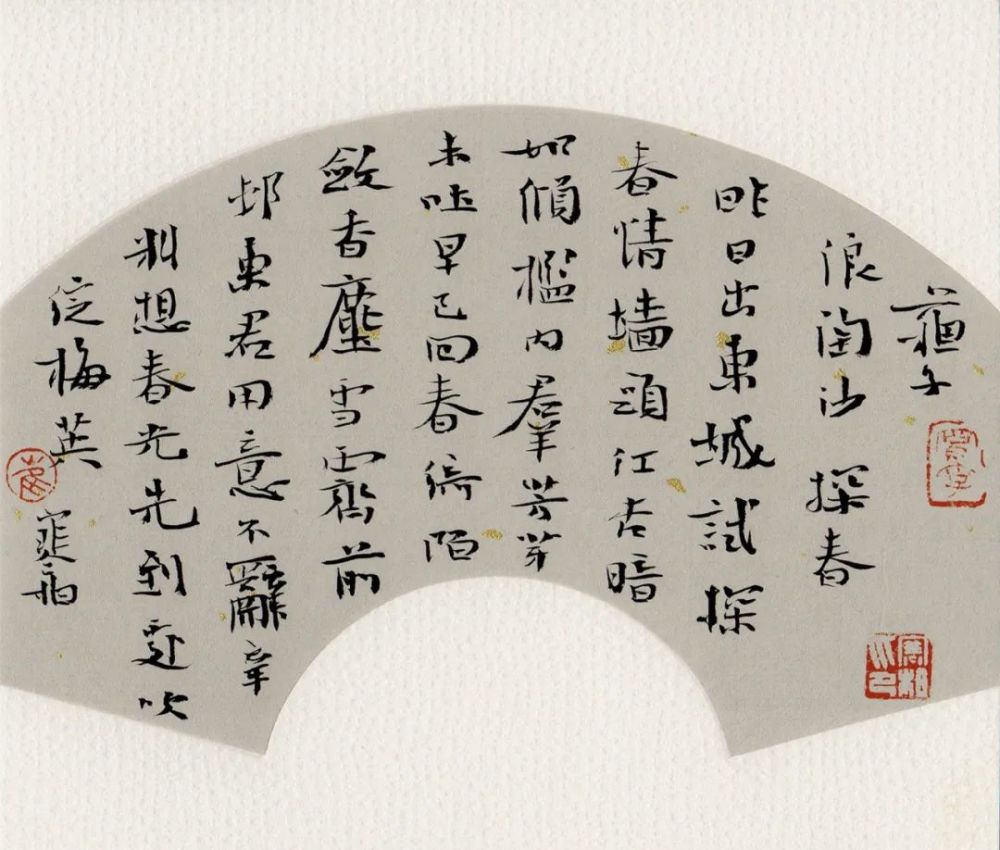 蘓子
浪淘沙 探春
昨日出東城試探
春情墻頭红杏暗
如傾檻内羣芳芽
未吐早已回春綺陌
斂香塵雪霽前
邨東君用意不辭辛
料想春光先到處吹
綻梅英